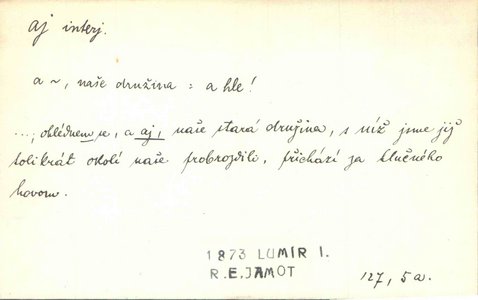 aj interj.
a ~, naše družina = a hle!
...; ohlédnem se, a aj, naše stará družina, s níž jsme již
tolikrát okolí naše probrojdili, přichází za hlučného
hovoru.
1873 LUMÍR I.
R.E.JAMOT
127, 5a.